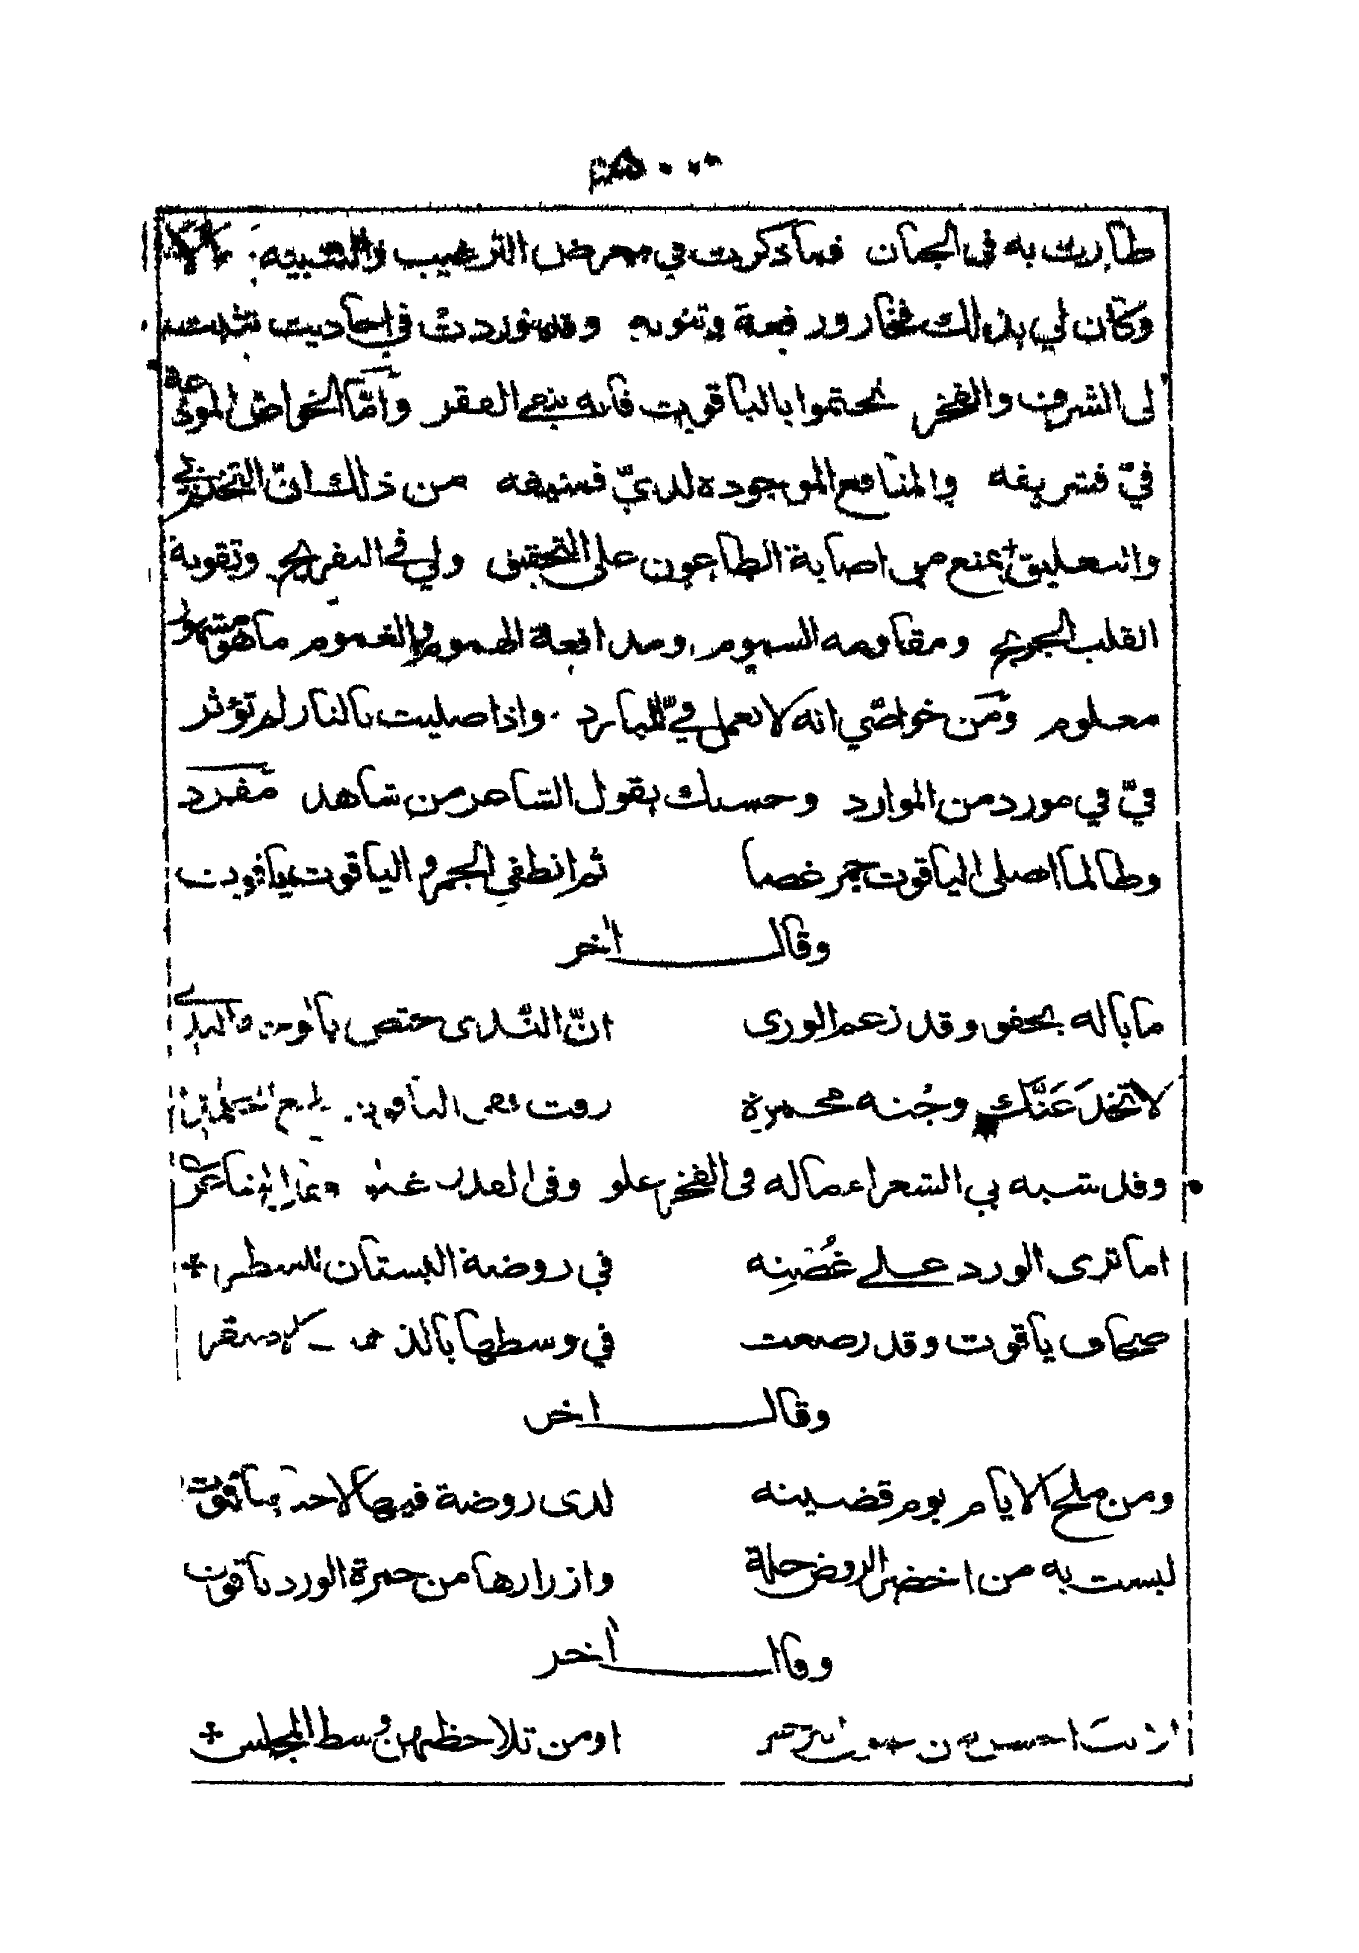 طارت به في الجنان فما ذكرت في معرض الترغيب والتشبيه
وكان لي بذلك فخار ورفعة وتنويه وقد وردت في احاديث
الى الشرف والفخر تختموا بالياقوت فانه ينفي الفقر وامّا الخواص
فيّ فشريفه والمنافع الموجودة لديّ فمنيفه من ذلك انّ التختم بي
والتعليق يمنع من اصابة الطاعون على التحقيق ولي في التفريح وتقوية
القلب الجريح ومقاومه السموم ومدافعة الهموم والغموم ما هو مشهور
معلوم ومن خواصّي انه لا تعمل فيّ المبارد واذا صليت بالنار لم تؤثر
فيّ في مورد من الموارد وحسبك بقول الشاعر من شاهد مفرد
وطالما اصلى الياقوت جمر غضا ثم انطفى الجمر والياقوت ياقوت
وقال اخر
ما باله يجفو وقد زعم الورى انّ الندى يختص بالوجه الندي
لا تخدعنّك وجنه محمرة رقت ففي الياقوت طبع الجلمد
وقد شبه بي الشعراء ماله في الفخر علو وفي القدر
اما ترى الورد على غصنه في روضة البستان
صحاف ياقوت وقد رصعت في وسطها بالذهب
وقال اخر
ومن ملح الايام يوم قضيته لدى روضة فيها لاحد
لبست به من اخضر الروض حلة وازرارها من حمرة الورد ياقوت
وقال اخر
او من تلاحظهن وسط المجلس